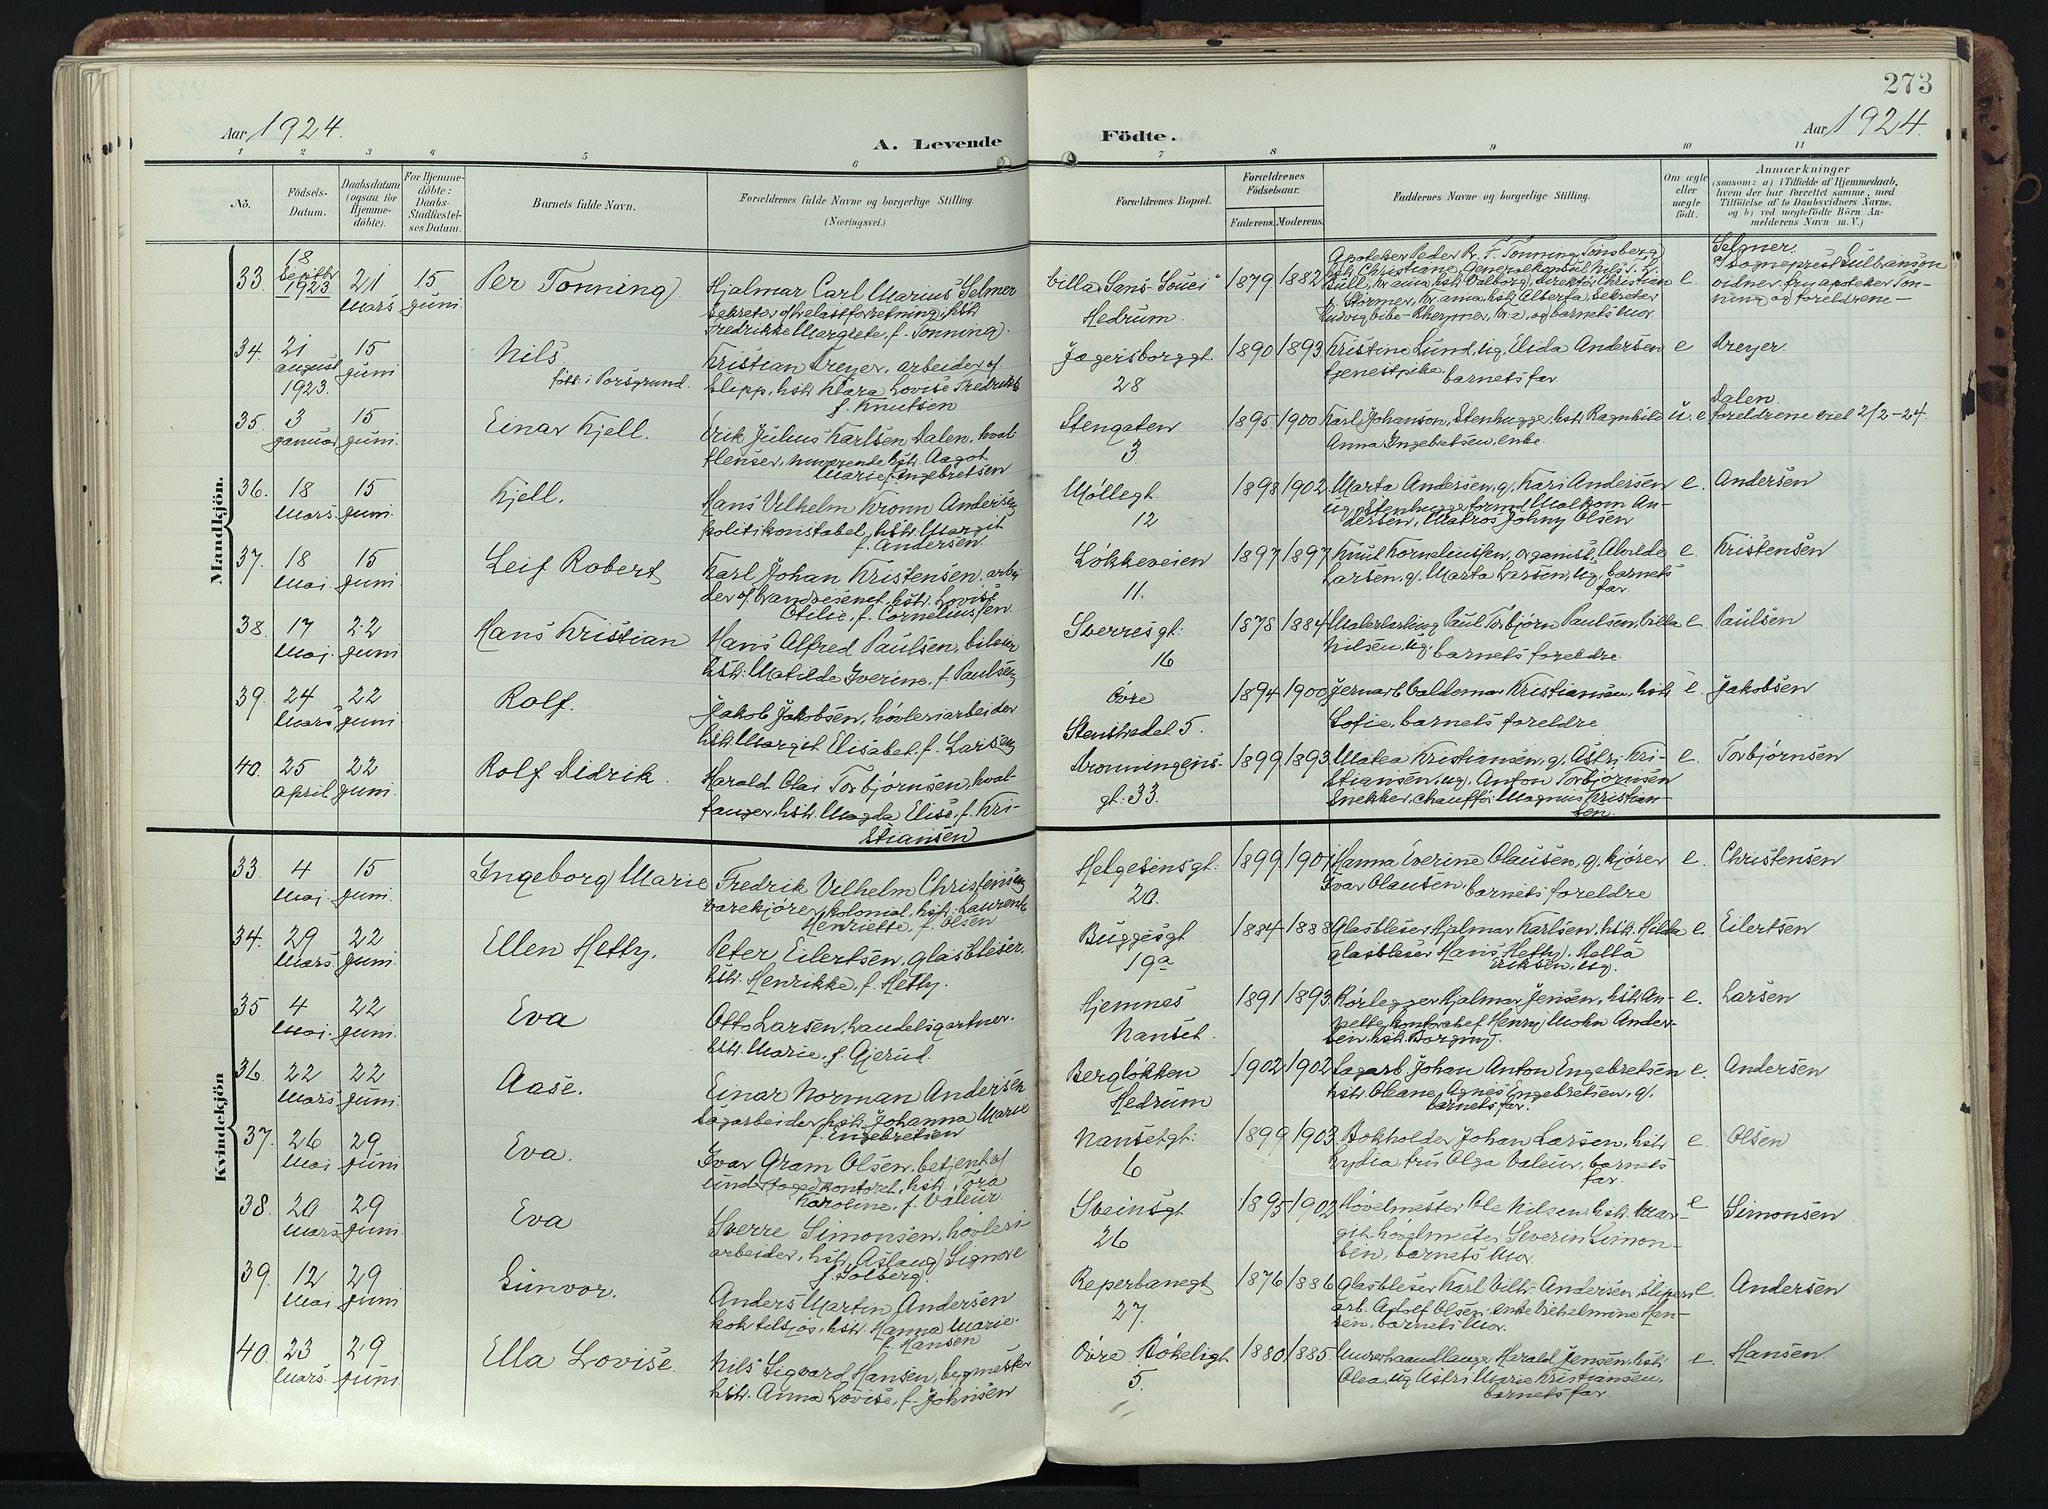 273
Aar 1924.
A. Levende
Födte.
Aar 1924.
1 2 3 4 5 6 7 8 9 10 11
No.
Födsels-
Datum.
Daabsdatum
(ogsaa for
Hjemme-
döbte).
For Hjemme-
döbte:
Daabs-
Stadfæstel-
ses Datum.
Barnets fulde Navn.
Forældrenes fulde Navne og borgerlige Stilling.
(Næringsvei.)
Forældrenes Bopæl.
Forældrenes
Födselsaar.
Faderens. Moderens.
Faddernes Navne og borgerlige Stilling.
Om ægte
eller
uægte
födt.
Anmærkninger
(saasom: a) i Tilfælde af Hjemmedaab,
hvem der har forrettet samme, med
Tilföielse af to Daabsvidners Navne.
og b) ved uægtefödte Börn An-
melderens Navn m. V.)
Mandkjön.
33. 18 Septbr 1923 21 Mars 15 juni Per Tonning.
Hjalmar Carl Marius Selmer
Fredrikke Margrete, f. Tonning.
Villa "Sans-Souci"
Hedrum.
1879 1882
Apoteker Peder R. F. Tonning, Tønsberg,
hstr Christiane, Generalkonsul Nils S. D.
og barnets Mor.
e.
Selmer.
vidner fru apoteker Ton-
ning og foreldrene
34. 21 august 1923. 15 juni Nils.
født i Porsgrund.
Kristian Dreyer, arbeider of
slipp, hstr. Klara Lovise Fredrikke
f. Knutsen
Jegersborggt.
28
1890 1893
Kristine Lund, ug. Elida Andersen
tjenestpike, barnets far.
e
Dreyer.
35. 3 januar 15 juni Einar Kjell.
Erik Julius Karlsen Dalen, hval-
flenser, nuværende hstr. Aagot
Marie Ingebretsen
Stengaten
3.
1895 1900
Karl Johanson, Stenhugge, hstr Ragnhild
Anna Ingebretsen, enke.
u. e
Dalen.
foreldrene viet 2/2-24.
36. 18 Mars. 15 juni. Kjell.
Hans Vilhelm Kronn Andersen
politikonstabel, hstr. Margit
f. Andersen.
Møllegt.
12
1898 1902
Marta Andersen, g. Kari Andersen
ug. Stenhuggerformd Malkom An-
dersen, Matros Johny Olsen
e.
Andersen
37. 18 Mai 15 juni Leif Robert
Karl Johan Kristensen, arbei
der of brandvesenet, hstr. Lovise
Otilie, f. Corneliussen.
Løkkeveien
11.
1897 1897
Knut Korneliussen, organist, Alvilde
Larsen, g. Marta Larsen, ug. barnets
far.
e.
Kristensen
38. 17 Mai. 22 juni Hans Kristian
Hans Alfred Paulsen, bileier
hstr. Matilde Iverine, f. Paulsen
Sverresgt.
16
1878 1884
Malerlærling Paul Torbjørn Paulsen, Villa
Nilsen, ug. barnets foreldre.
e.
Paulsen
39. 24 Mars 22 juni. Rolf.
Jakob Jakobsen, høvleriarbeider
hstr. Margit Elisabet, f. Larsen
Øvre
Stenstredet 5.
1894 1900
Jernarb. Valdemar Kristiansen, hstr
Sofie, barnets foreldre
e.
Jakobsen
40. 25 april 22 juni. Rolf Didrik.
Harald Olai Torbjørnsen, hval-
fanger, hstr. Magda Elise, f. Kri-
stiansen
Dronningens-
gt. 33.
1899 1893
Matea Kristiansen, g. Astri Kri-
stiansen, ug. Anton Torbjørnsen
snekker, chauffør Magnus Kristian-
sen.
e.
Torbjørnsen
Kvindekjön
33. 4 Mai. 15 juni. Ingeborg Marie
Fredrik Vilhelm Christensen
varekjører, kolonial, hstr. Laurenze
Henriette, f. Olsen
Helgesensgt.
20.
1899 1901
Hanna Everine Olausen, g. kjører
Ivar Olausen, barnets foreldre
e.
Christensen
34. 29 Mars 22 juni. Ellen Hetty.
Peter Eilertsen, glasbleser.
hstr. Henrikke, f. Hetly.
Buggesgt
19a
1884 1888
Glasbleser Hjalmar Karlsen, hstr. Hilda
glasbleser Hans Hetly, Hella
Eriksen, ug.
e.
Eilertsen
35 4 Mai. 22 juni Eva
Otto Larsen, handelsgartner.
hstr. Marie, f. Gjerud.
Hjemnes
Nanset.
1891 1893
Rørlegger Hjalmar Jensen, hstr. An-
nette, kontorchef Henry Mohn Ander-
sen, hstr. Borgny.
e.
Larsen
36 22 Mars 22 juni. Aase.
Einar Norman Andersen
Sagarbeider, hstr. Johanna Marie
f. Engebretsen
Bergløkken
Hedrum
1902 1902
Sagarb. Johan Anton Engebretsen
hstr. Oleane, Agnes Engebretsen, g.
barnets far.
e.
Andersen
37. 26 Mai 29 juni Eva.
Ivar Gram Olsen, betjent of
hstr. Tora
Karoline, f. Valeur.
Nansetgt.
6
1899 1903.
Bokholder Johan Larsen, hstr
Lydia fru Olga Valeur, barnets
far.
e.
Olsen
38. 20 Mars 29 juni. Eva
Sverre Simonsen, høvleri
arbeider, hstr. Aslaug Signore
f. Solberg.
Sveinsgt
26
1895 1902
Høvelmester Ole Nilsen, hstr. Mar-
git, høvelmester Severin Simon-
sen, barnets Mor.
e
Simonsen
39. 12 Mai 29 juni. Gunvor.
Anders Martin Andersen
kok tilsjøs, hstr. Hanna Marie
f. Hansen
Reperbanegt
27.
1876 1886
Glasbleser Karl Vilh. Andersen, sliperi
arb. Adolf Olsen, enke Vilhelmine Hen-
sen, barnets Mor.
e.
Andersen
40. 23 Mars. 29 juni Ella Lovise.
Nils Sigvard Hansen, bygmester
hstr. Anna Lovise, f. Johnsen
Øvre Bøkeligt
5.
1880 1885.
Murerhaandlanger Harald Jensen, hstr
Olea, ug Astri Marie Kristiansen,
barnets far.
e.
Hansen.